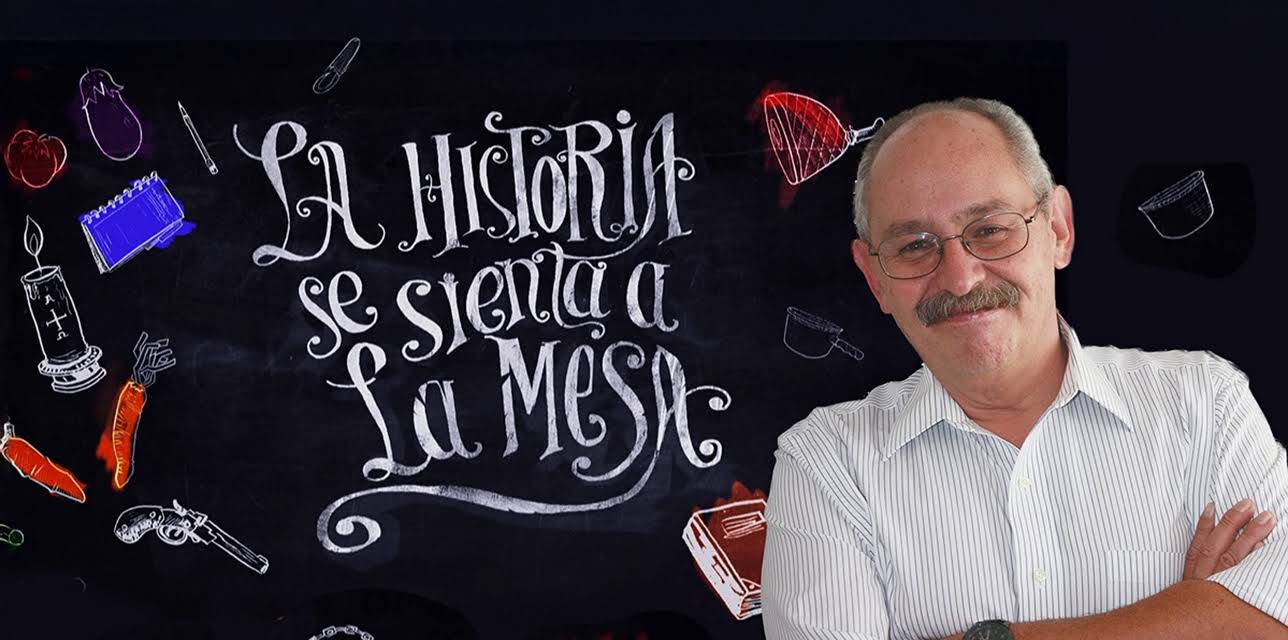 LA HISTORIA
se sienta a
La MESA